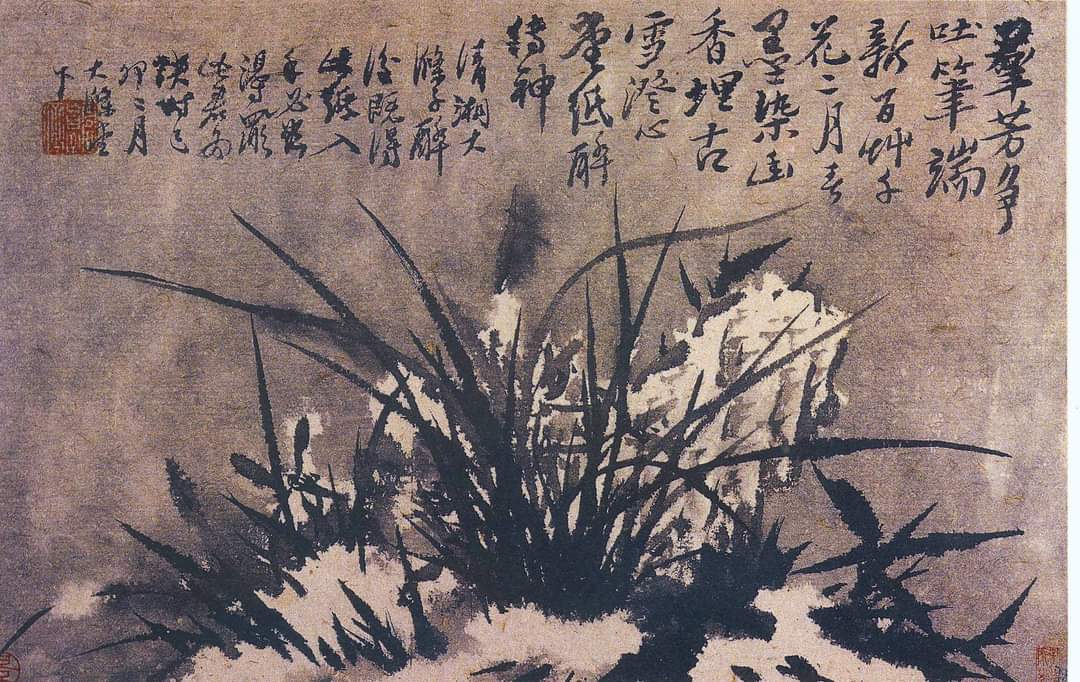 羣芳爭
吐筆端
新百艸千
花二月春
墨染幽
香埋古
雪澄心
庫紙醉
精神
清湘大
滌子醉
後既得
此紙入
手必
得
時己
卯二月
大滌堂
下